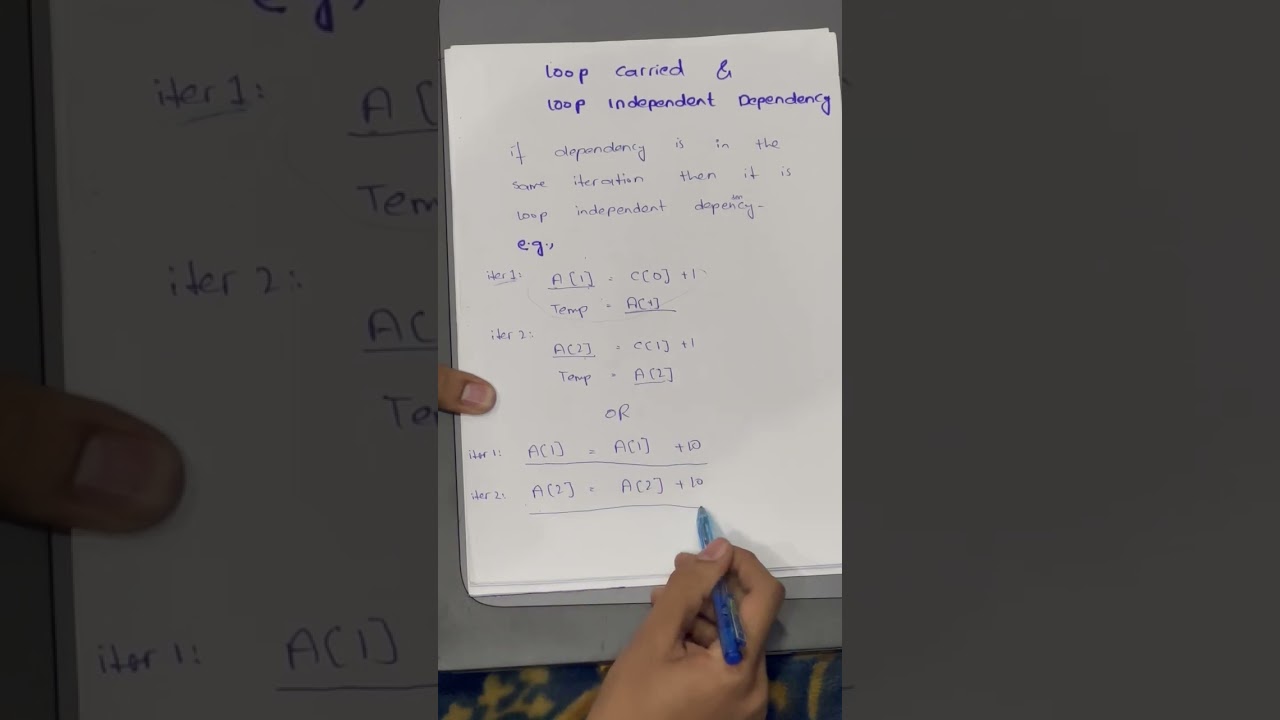 loop carried &
loop Independent Dependency
if dependency is in the
same iteration then it is
loop independent depen den cy-
e.g.,
iter 1: A[1] = C[0] +1
Temp = A[1]
iter 2:
A[2] = C[1] +1
Temp = A[2]
OR
iter 1: A[1] = A[1] +10
iter 2: A[2] = A[2] +10
e.g,
iter 1: A[
Tem
iter 2:
A[
Te
iter 1: A[1]